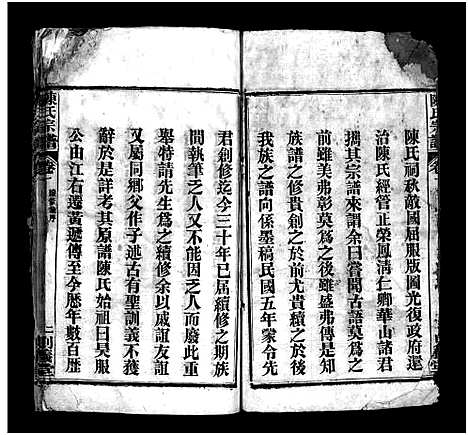 陳氏宗譜
卷
陳氏祠秋敵國屈服版圖光復政府還
治陳氏經管正榮鳳清仁卿華山諸君
攜其宗譜來謂余曰嘗聞古語莫為之
前雖美弗彰莫為之後雖盛弗傳是知
族譜之修貴創之於前尤貴續之於後
我族之譜向係墨稿民國五年蒙令先
君創修迄今三十年已屆續修之期族
間執筆之人又不可因無人而廢此重
舉特請先生為之續修余以戚誼友誼
又屬同鄉父作子述古有聖訓義不獲
辭於是詳考其原譜陳氏始祖曰昊服
公由江右遷黃遞傳至今歷年數百歷
陳氏宗譜
卷